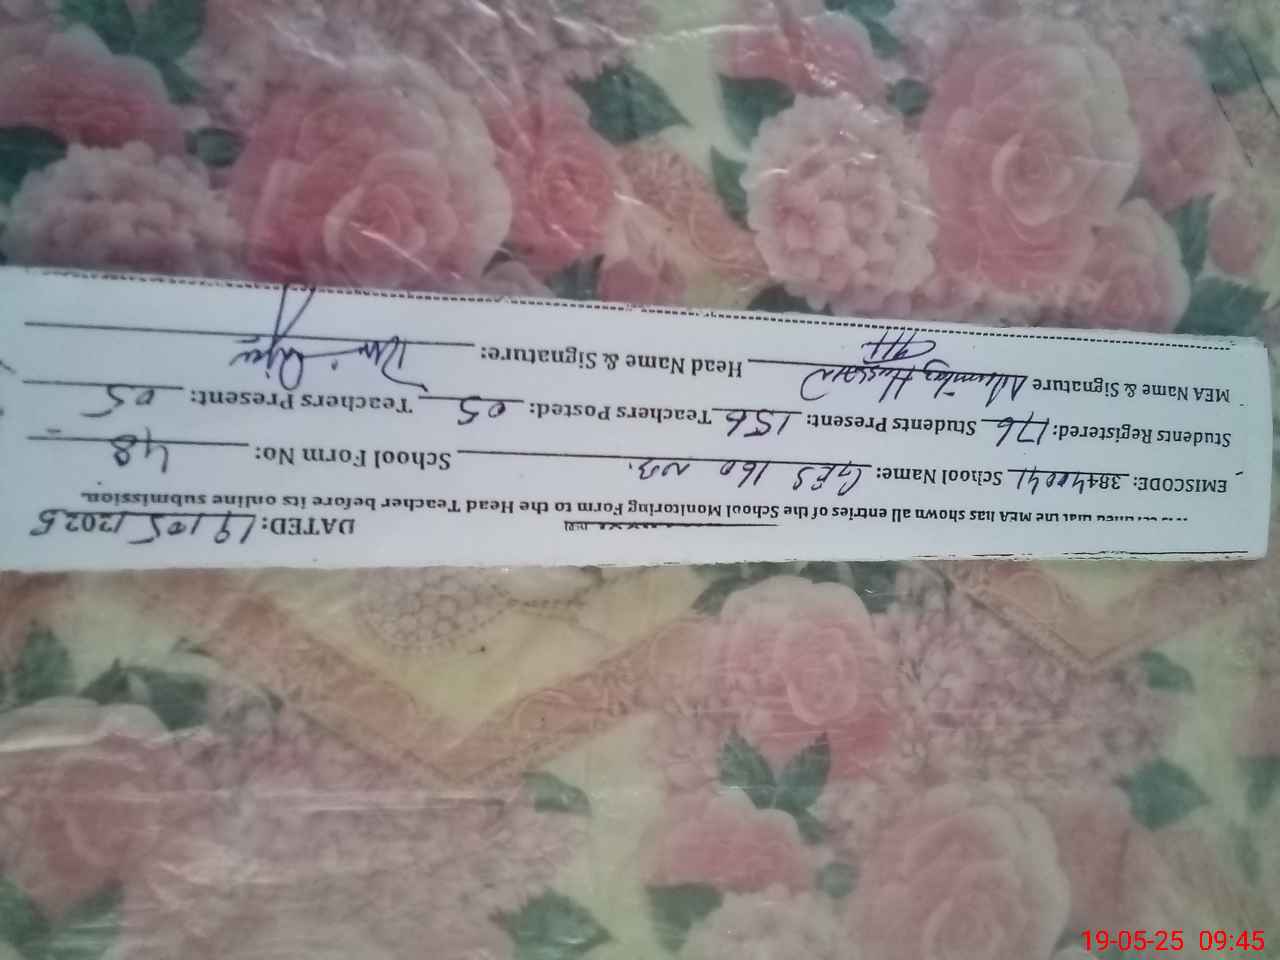 DATED: 19/05/2025
that the MEA has shown all entries of the School Monitoring Form to the Head Teacher before its online submission.
EMISCODE: 38440041 School Name: GES 160 NB. School Form No: 48
Students Registered: 176 Students Present: 156 Teachers Posted: 05 Teachers Present: 05
MEA Name & Signature Mumtaz Hussain Head Name & Signature:
19-05-25 09:45